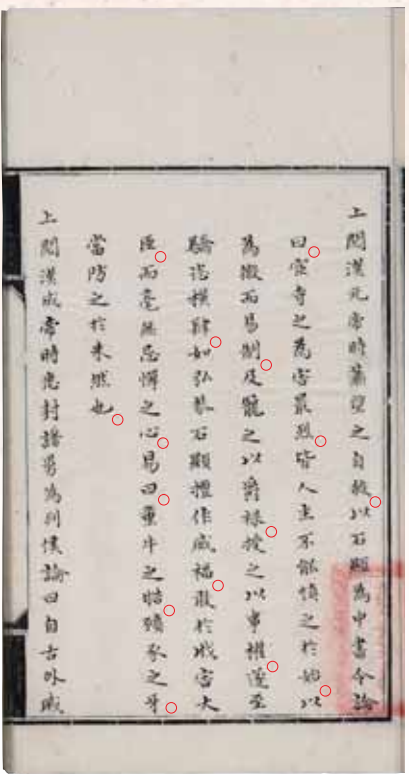 上閱漢元帝時蕭望之自殺以石顯為中書令論
曰宦寺之為害最烈皆人主不能慎之於始以
為微而易制及寵之以爵祿授之以事權遂至
驕恣橫肆如弘恭石顯擅作威福敢於戕害大
臣而毫無忌憚之心易曰童牛之牿豶豕之牙
當防之於未然也
上閱漢成帝時悉封諸舅為列侯論曰自古外戚